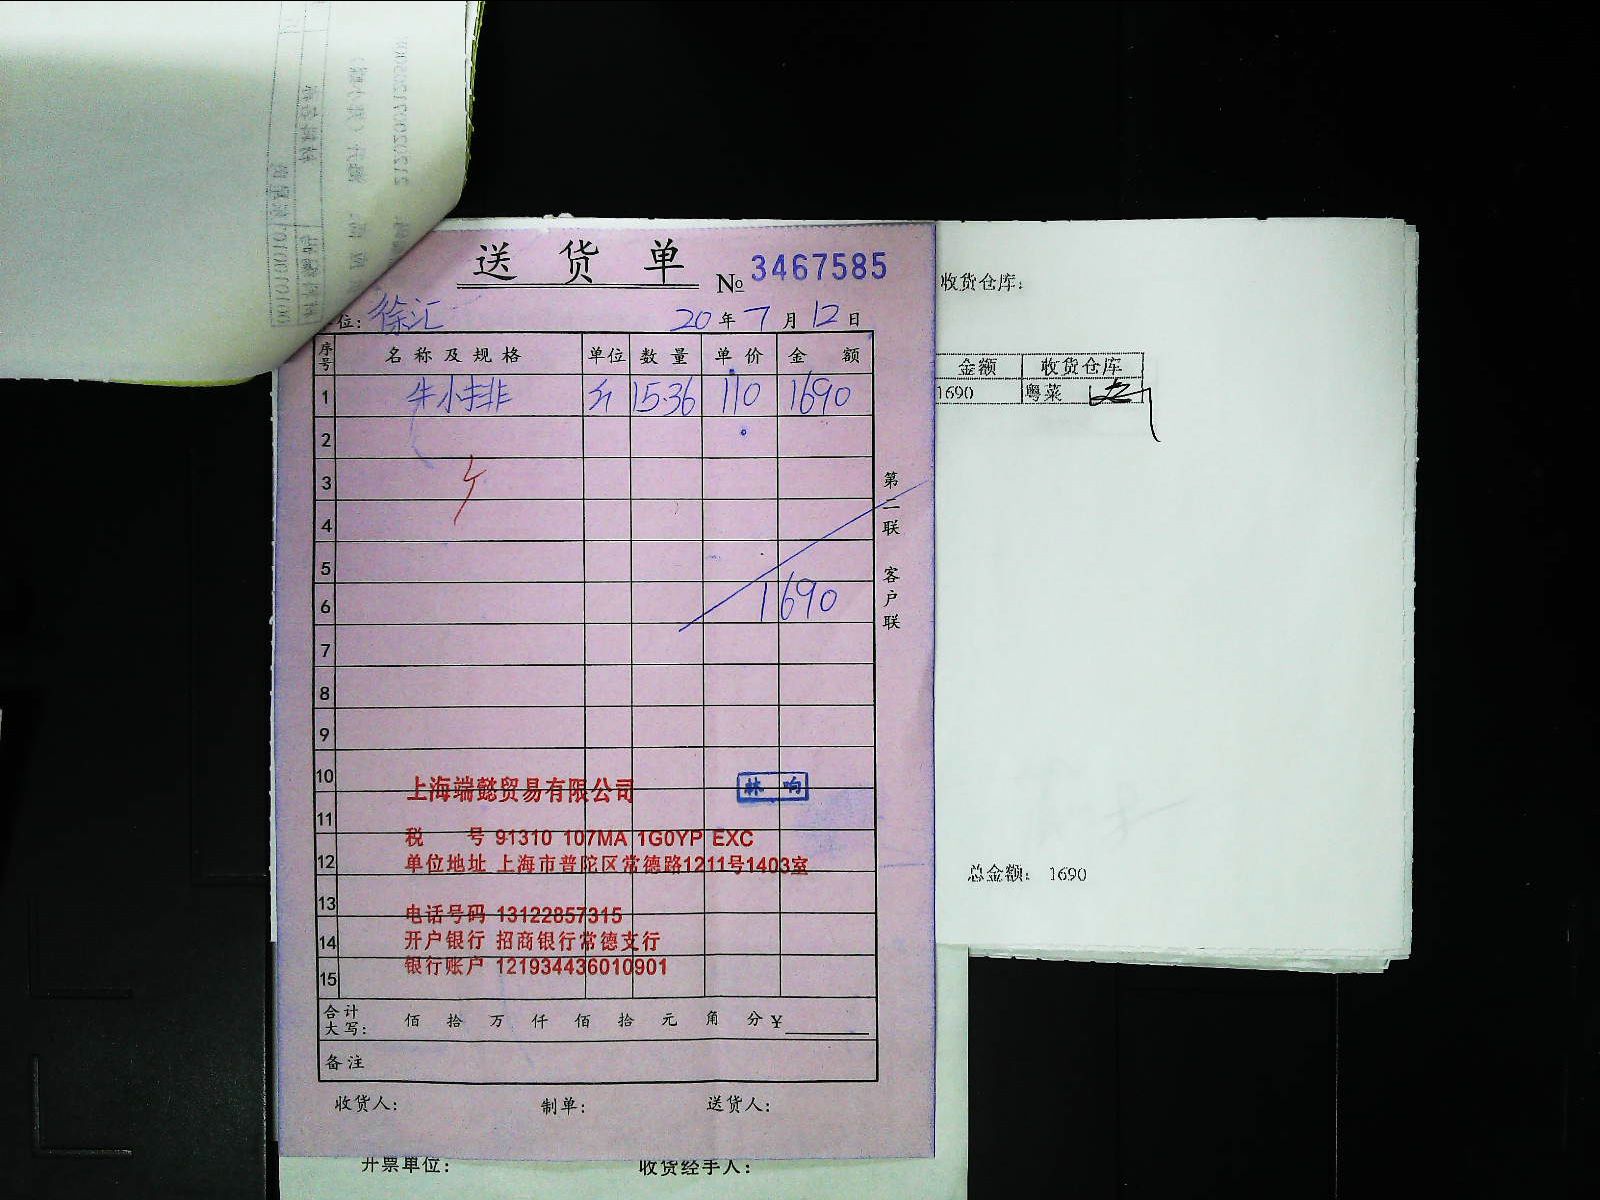 送 货 单 № 3467585
位: 徐汇 20 年 7 月 12 日
序号 名称及规格 单位 数量 单价 金额
1 牛小排 斤 15.36 110 1690
2
3
4
5
6 1690
7
8
9
10
11
12
13
14
15
第二联 客户联
上海端懿贸易有限公司
林 向
税 号 91310 107MA 1G0YP EXC
单位地址 上海市普陀区常德路1211号1403室
电话号码 13122857315
开户银行 招商银行常德支行
银行账户 121934436010901
合计大写: 佰 拾 万 仟 佰 拾 元 角 分 ¥
备注
收货人: 制单: 送货人:
开票单位: 收货经手人:
收货仓库:
金额 收货仓库
1690 粤菜
总金额: 1690